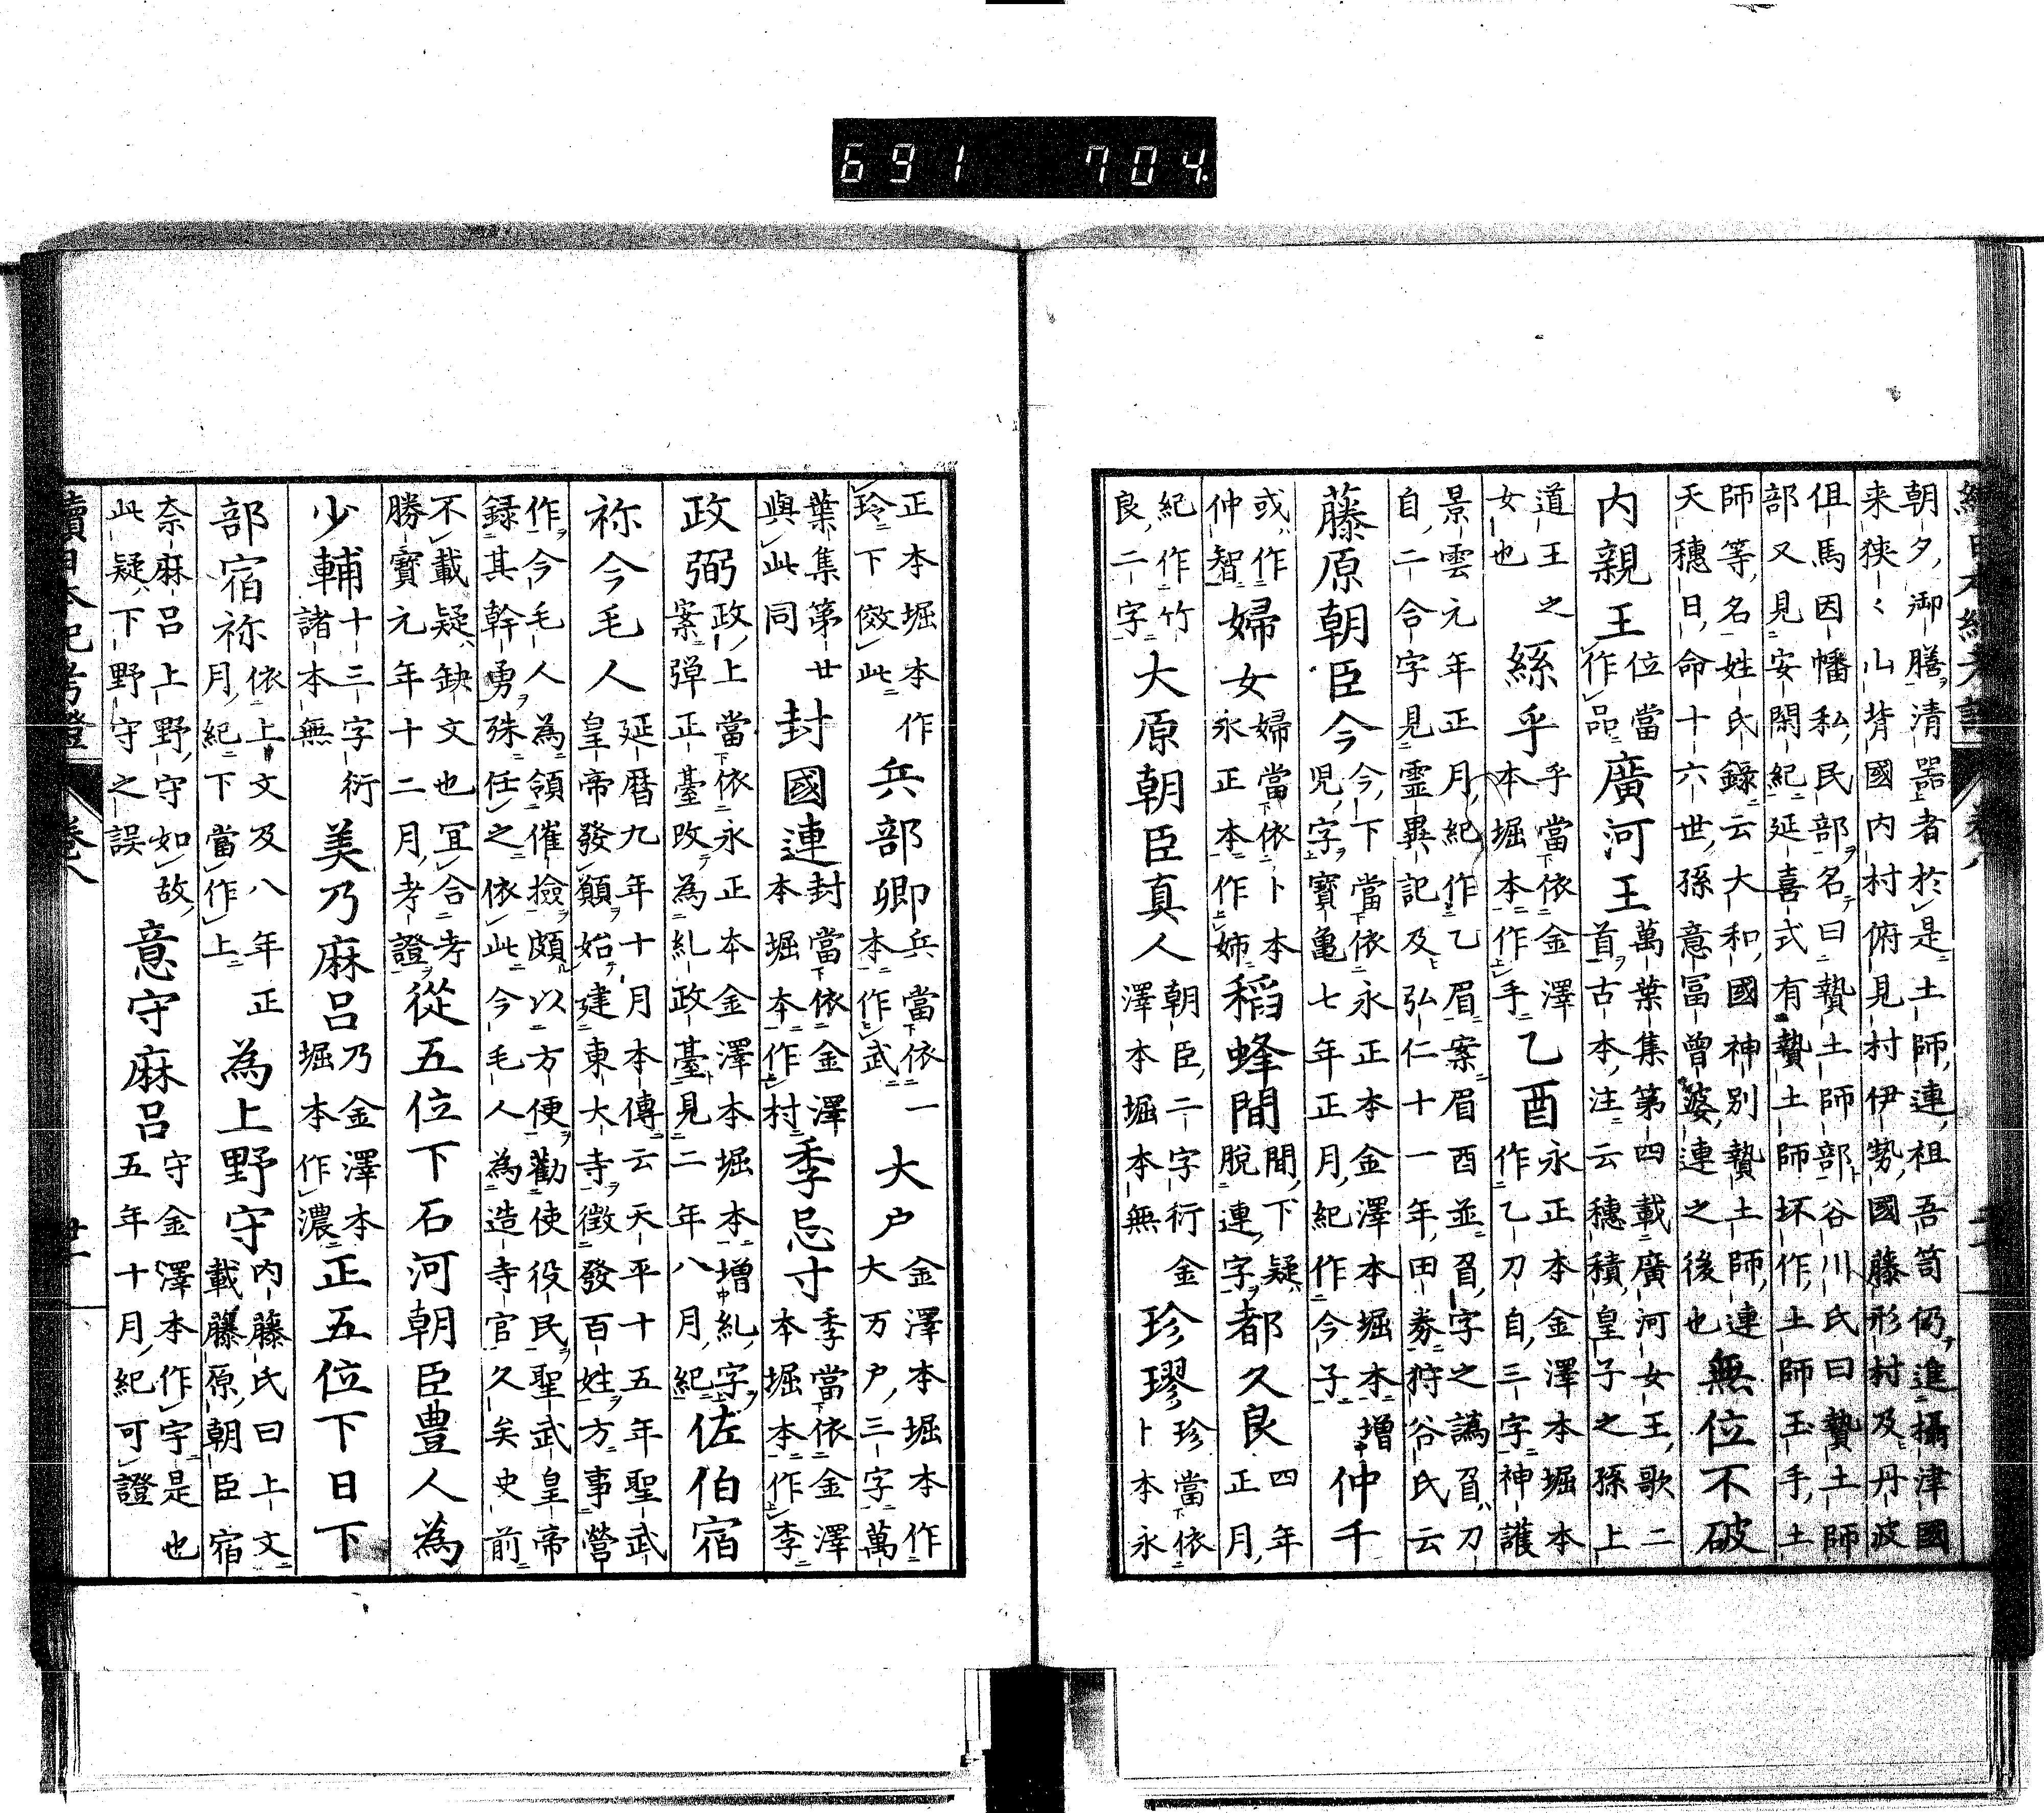 691 704.
朝夕御膳清器者於是土師連祖吾笥仍進攝津國
来狹〻山背國内村俯見村伊勢國藤形村及丹波
但馬因幡私民部名曰贄土師部谷川氏曰贄土師
部又見安閑紀延喜式有贄土師坏作土師玉手土
師等名姓氏錄云大和國神別贄土師連
天穗日命十六世孫意冨曾婆連之後也
無位不破
内親王
位當
作品
廣河王
萬葉集第四載廣河女王歌二
首古本注云穗積皇子之孫上
道王之
女也
縣乎
乎當依金澤
本堀本作手
乙酉
永正本金澤本堀本
作乙刀自三字神護
景雲元年正月紀作乙眉案眉酉並𥄂字之譌𥄂刀
自二合字見靈異記及弘仁十一年田劵狩谷氏云
藤原朝臣今
今下當依永正本金澤本堀本增
児字寶亀七年正月紀作今子
仲千
或作
仲智
婦女
婦當依卜本
永正本作姉
稻蜂間
間下疑
脫連字
都久良
四年
正月
紀作竹
良二字
大原朝臣真人
朝臣二字衍金
澤本堀本無
珍璆
珍當依
卜本永
正本堀本作
玲下倣此
兵部卿
兵當依一
本作武
大户
金澤本堀本作
大万户三字萬
葉集第廿
與此同
封國連
封當依金澤
本堀本作村
季忌寸
季當依金澤
本堀本作李
政弼
政上當依永正本金澤本堀本增糺字
案弾正臺改為糺政臺見二年八月紀
佐伯宿
祢今毛人
延暦九年十月本傳云天平十五年聖武
皇帝發願始建東大寺徴發百姓方事營
作今毛人為領催撿頗以方便勸使役民聖武皇帝
録其幹勇殊任之依此今毛人為造寺官久矣史前
不載疑缺文也冝合考
勝寶元年十二月考證
從五位下石河朝臣豊人為
少輔
十三字衍
諸本無
美乃麻呂
乃金澤本
堀本作濃
正五位下日下
部宿祢
依上文及八年正
月紀下當作上
為上野守
内藤氏曰上文
載藤原朝臣宿
奈麻呂上野守如故
此疑下野守之誤
意守麻呂
守金澤本作宇是也
五年十月紀可證
續日本紀考證 卷八